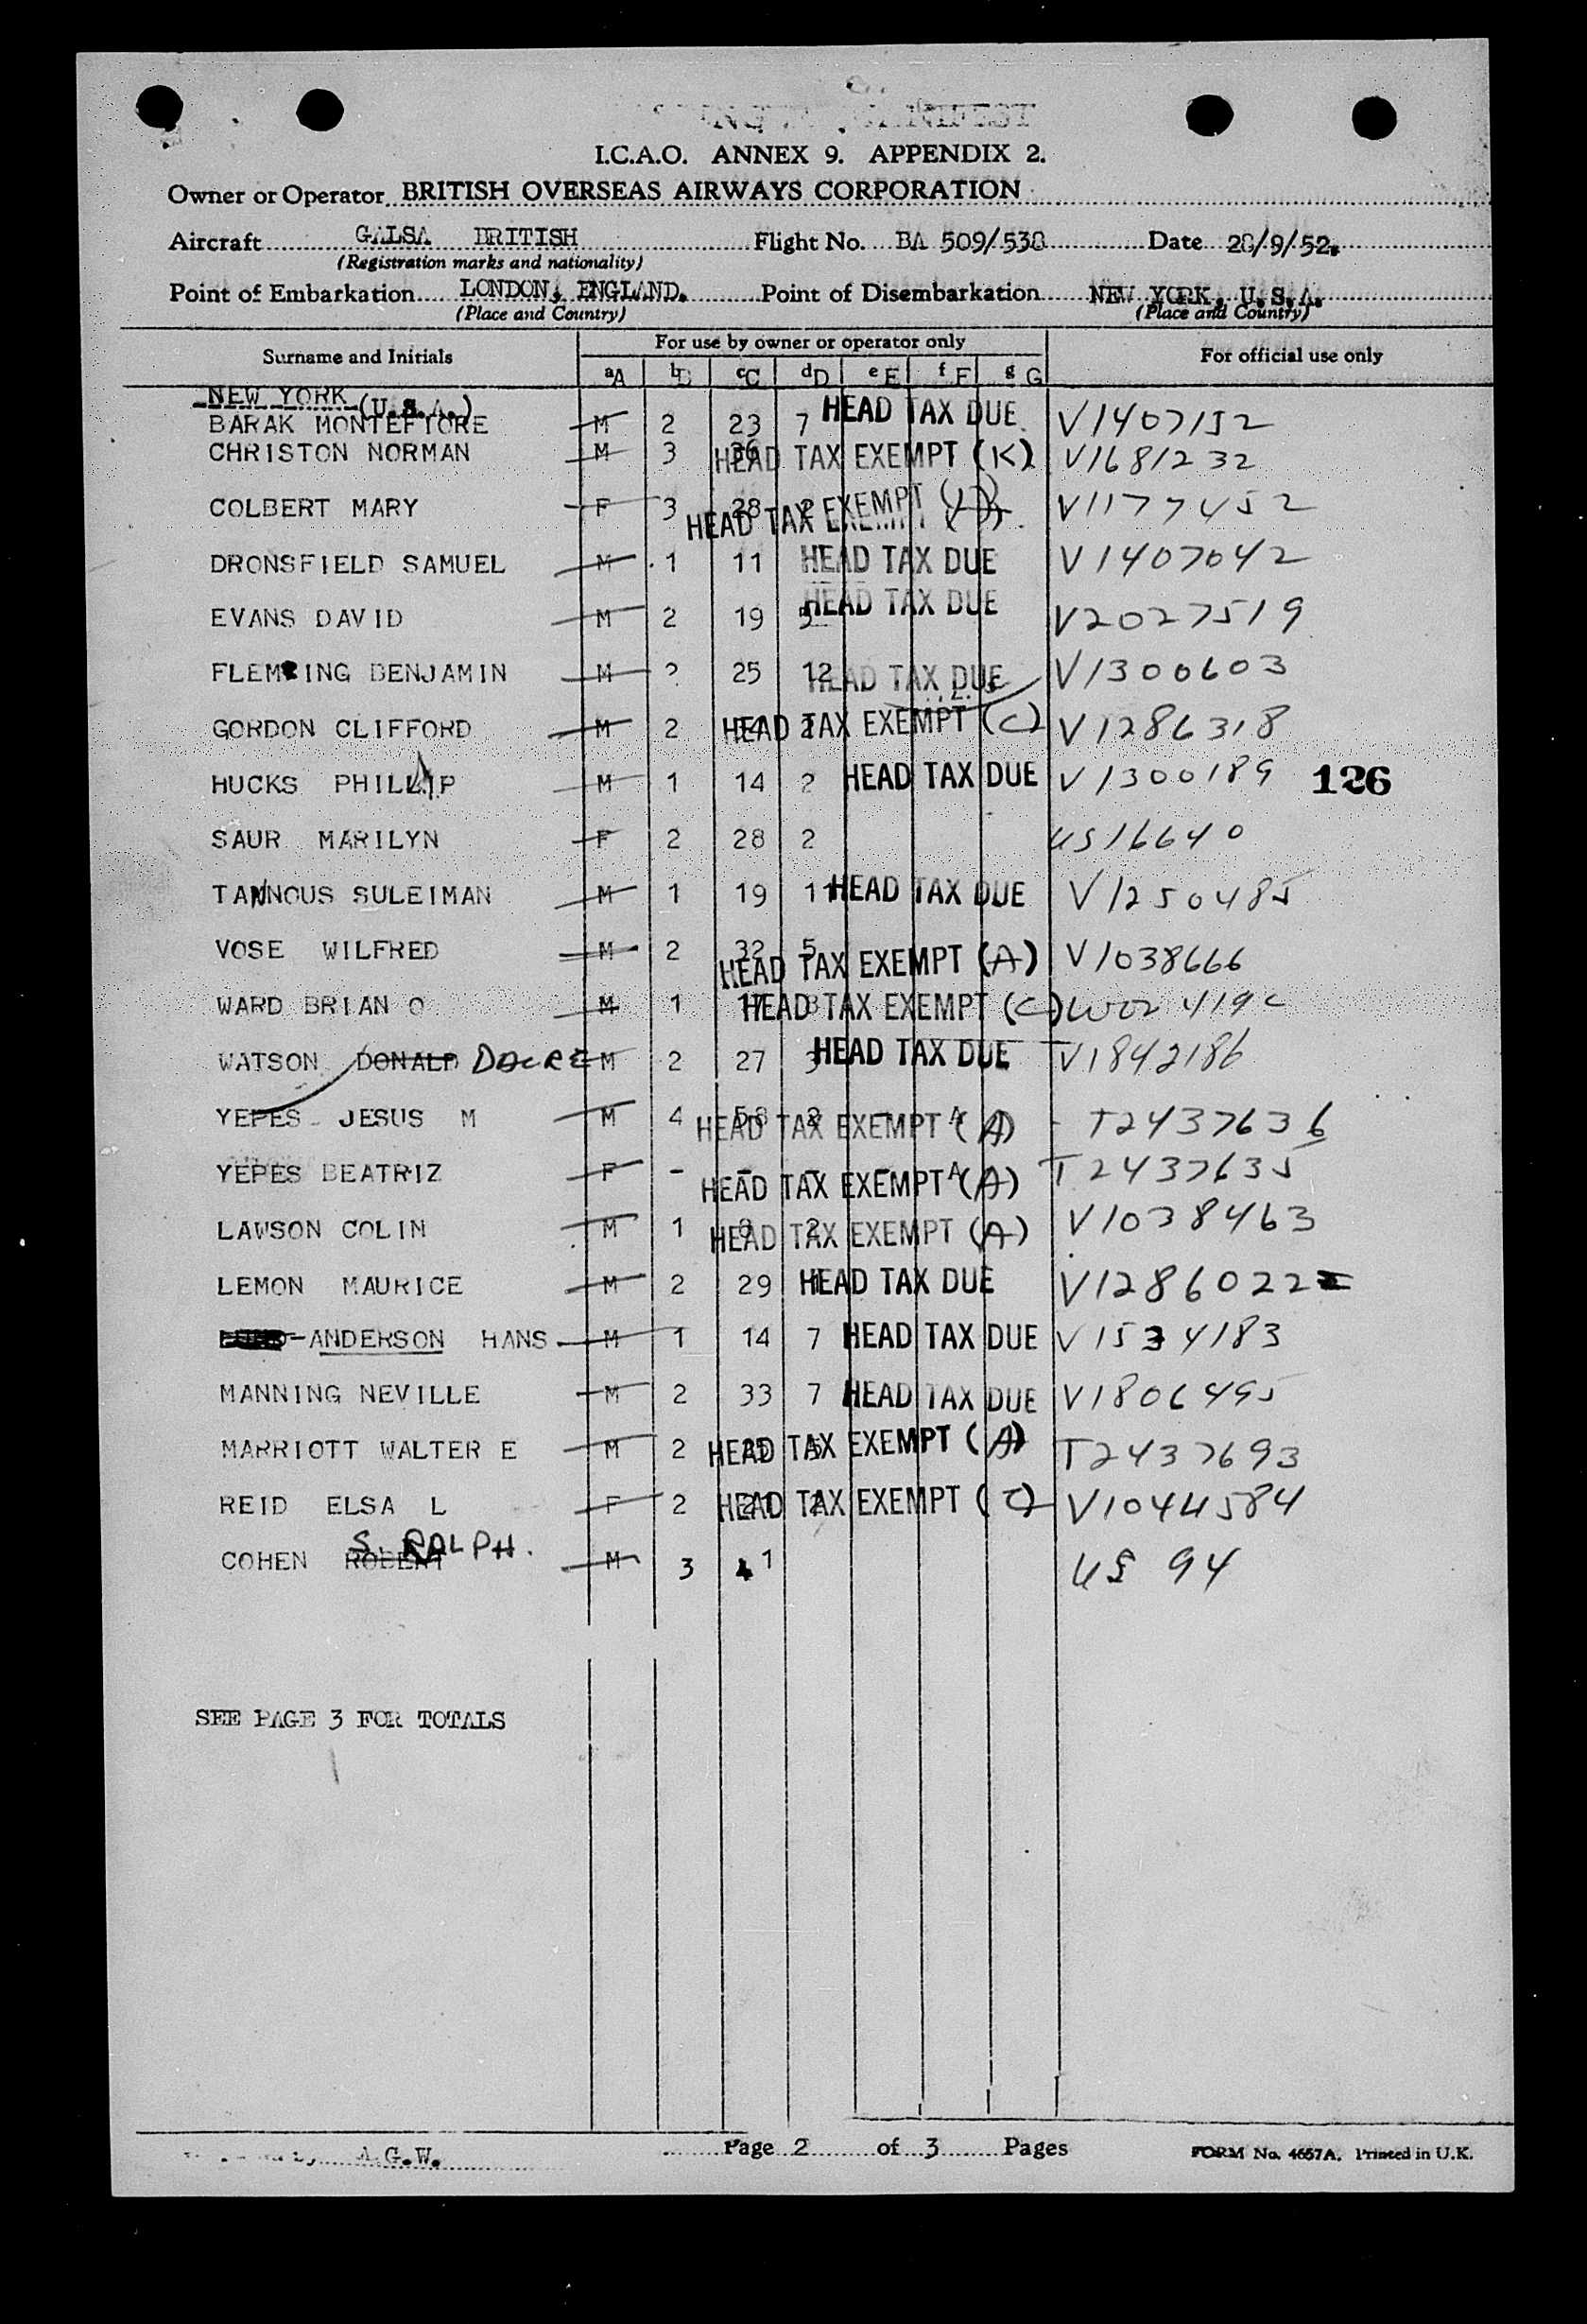 I.C.A.O. ANNEX 9. APPENDIX 2.
Owner or Operator BRITISH OVERSEAS AIRWAYS CORPORATION
Aircraft GALSA BRITISH Flight No. BA 509/538 Date 28/9/52.
(Registration marks and nationality)
Point of Embarkation LONDON, ENGLAND. Point of Disembarkation NEW YORK, U.S.A.
(Place and Country) (Place and Country)
Surname and Initials For use by owner or operator only For official use only
aA bB cC dD eE fF gG
NEW YORK (U.S.A.)
BARAK MONTEFIORE M 2 23 7 HEAD TAX DUE V1407152
CHRISTON NORMAN M 3 36 HEAD TAX EXEMPT (K) V1681232
COLBERT MARY F 3 28 2 HEAD TAX EXEMPT V1177452
DRONSFIELD SAMUEL M 1 11 HEAD TAX DUE V1407042
EVANS DAVID M 2 19 5 HEAD TAX DUE V2027519
FLEMING BENJAMIN M 2 25 12 HEAD TAX DUE V1300603
GORDON CLIFFORD M 2 HEAD TAX EXEMPT (C) V1286318
HUCKS PHILLIP M 1 14 2 HEAD TAX DUE V1300189 126
SAUR MARILYN F 2 28 2 US16640
TANNOUS SULEIMAN M 1 19 11 HEAD TAX DUE V1250485
VOSE WILFRED M 2 32 5 HEAD TAX EXEMPT (A) V1038666
WARD BRIAN O M 1 17 8 HEAD TAX EXEMPT (C)
WATSON DONALD DACRE M 2 27 3 HEAD TAX DUE V1842186
YEPES JESUS M M 4 58 2 HEAD TAX EXEMPT (A) T2437636
YEPES BEATRIZ F - - - - HEAD TAX EXEMPT (A) T2437635
LAWSON COLIN M 1 9 2 HEAD TAX EXEMPT (A) V1038463
LEMON MAURICE M 2 29 HEAD TAX DUE V1286022
ANDERSON HANS M 1 14 7 HEAD TAX DUE V1534183
MANNING NEVILLE M 2 33 7 HEAD TAX DUE V1806495
MARRIOTT WALTER E M 2 HEAD TAX EXEMPT (A) T2437693
REID ELSA L F 2 21 2 HEAD TAX EXEMPT (C) V1044584
S. RALPH.
COHEN ROBERT M 3 4 1 US 94
SEE PAGE 3 FOR TOTALS
A.G.W. Page 2 of 3 Pages FORM No. 4657A. Printed in U.K.